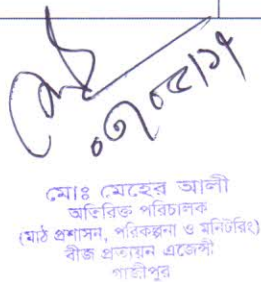 মোঃ মেহের আলী
অতিরিক্ত পরিচালক
(মাঠ প্রশাসন, পরিকল্পনা ও মনিটরিং)
বীজ প্রত্যয়ন এজেন্সী
গাজীপুর